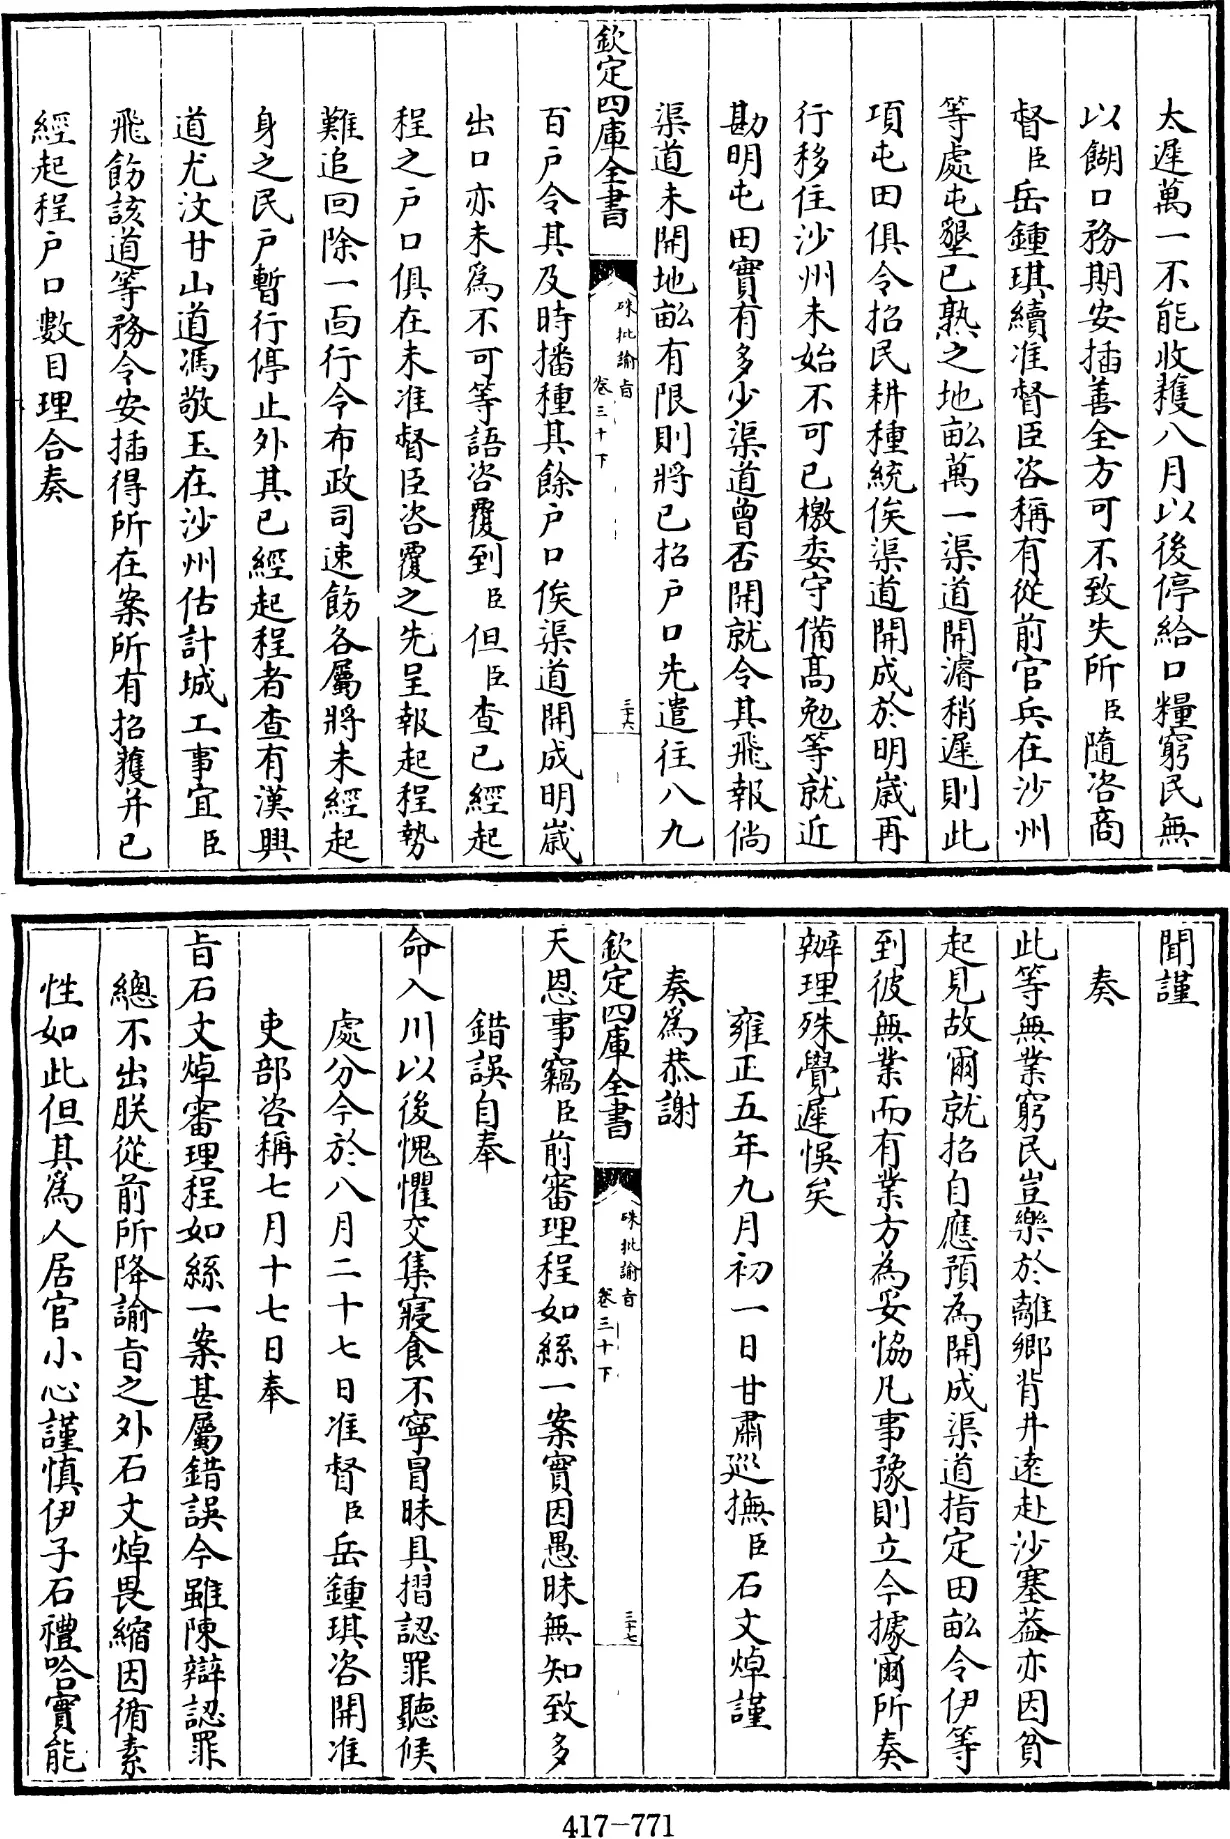 太遲萬一不能收穫八月以後停給口糧窮民無
以餬口務期安插善全方可不致失所臣隨咨商
督臣岳鍾琪續准督臣咨稱有從前官兵在沙州
等處屯墾已熟之地畝萬一渠道開濬稍遲則此
項屯田俱令招民耕種統俟渠道開成於明歲再
行移住沙州未始不可已檄委守備高勉等就近
勘明屯田實有多少渠道曾否開就令其飛報倘
渠道未開地畝有限則將已招户口先遣往八九
欽定四庫全書
硃批諭旨
卷三十下
三十六
百户令其及時播種其餘户口俟渠道開成明歲
出口亦未為不可等語咨覆到臣但臣查已經起
程之户口俱在未准督臣咨覆之先呈報起程勢
難追回除一面行令布政司速飭各屬將未經起
身之民户暫行停止外其已經起程者查有漢興
道尤汶甘山道馮敬玉在沙州估計城工事宜臣
飛飭該道等務令安插得所在案所有招獲并已
經起程户口數目理合奏
聞謹
奏
此等無業窮民豈樂於離鄉背井遠赴沙塞葢亦因貧
起見故爾就招自應預為開成渠道指定田畝令伊等
到彼無業而有業方為妥恊凡事豫則立今據爾所奏
辦理殊覺遲悞矣
雍正五年九月初一日甘肅巡撫臣石文焯謹
奏為恭謝
欽定四庫全書
硃批諭旨
卷三十下
三十七
天恩事竊臣前審理程如絲一案實因愚昧無知致多
錯誤自奉
命入川以後愧懼交集寢食不寧冒昧具摺認罪聽候
處分今於八月二十七日准督臣岳鍾琪咨開准
吏部咨稱七月十七日奉
旨石文焯審理程如絲一案甚屬錯誤今雖陳辯認罪
總不出朕從前所降諭旨之外石文焯畏縮因循素
性如此但其為人居官小心謹慎伊子石禮哈實能
417-771